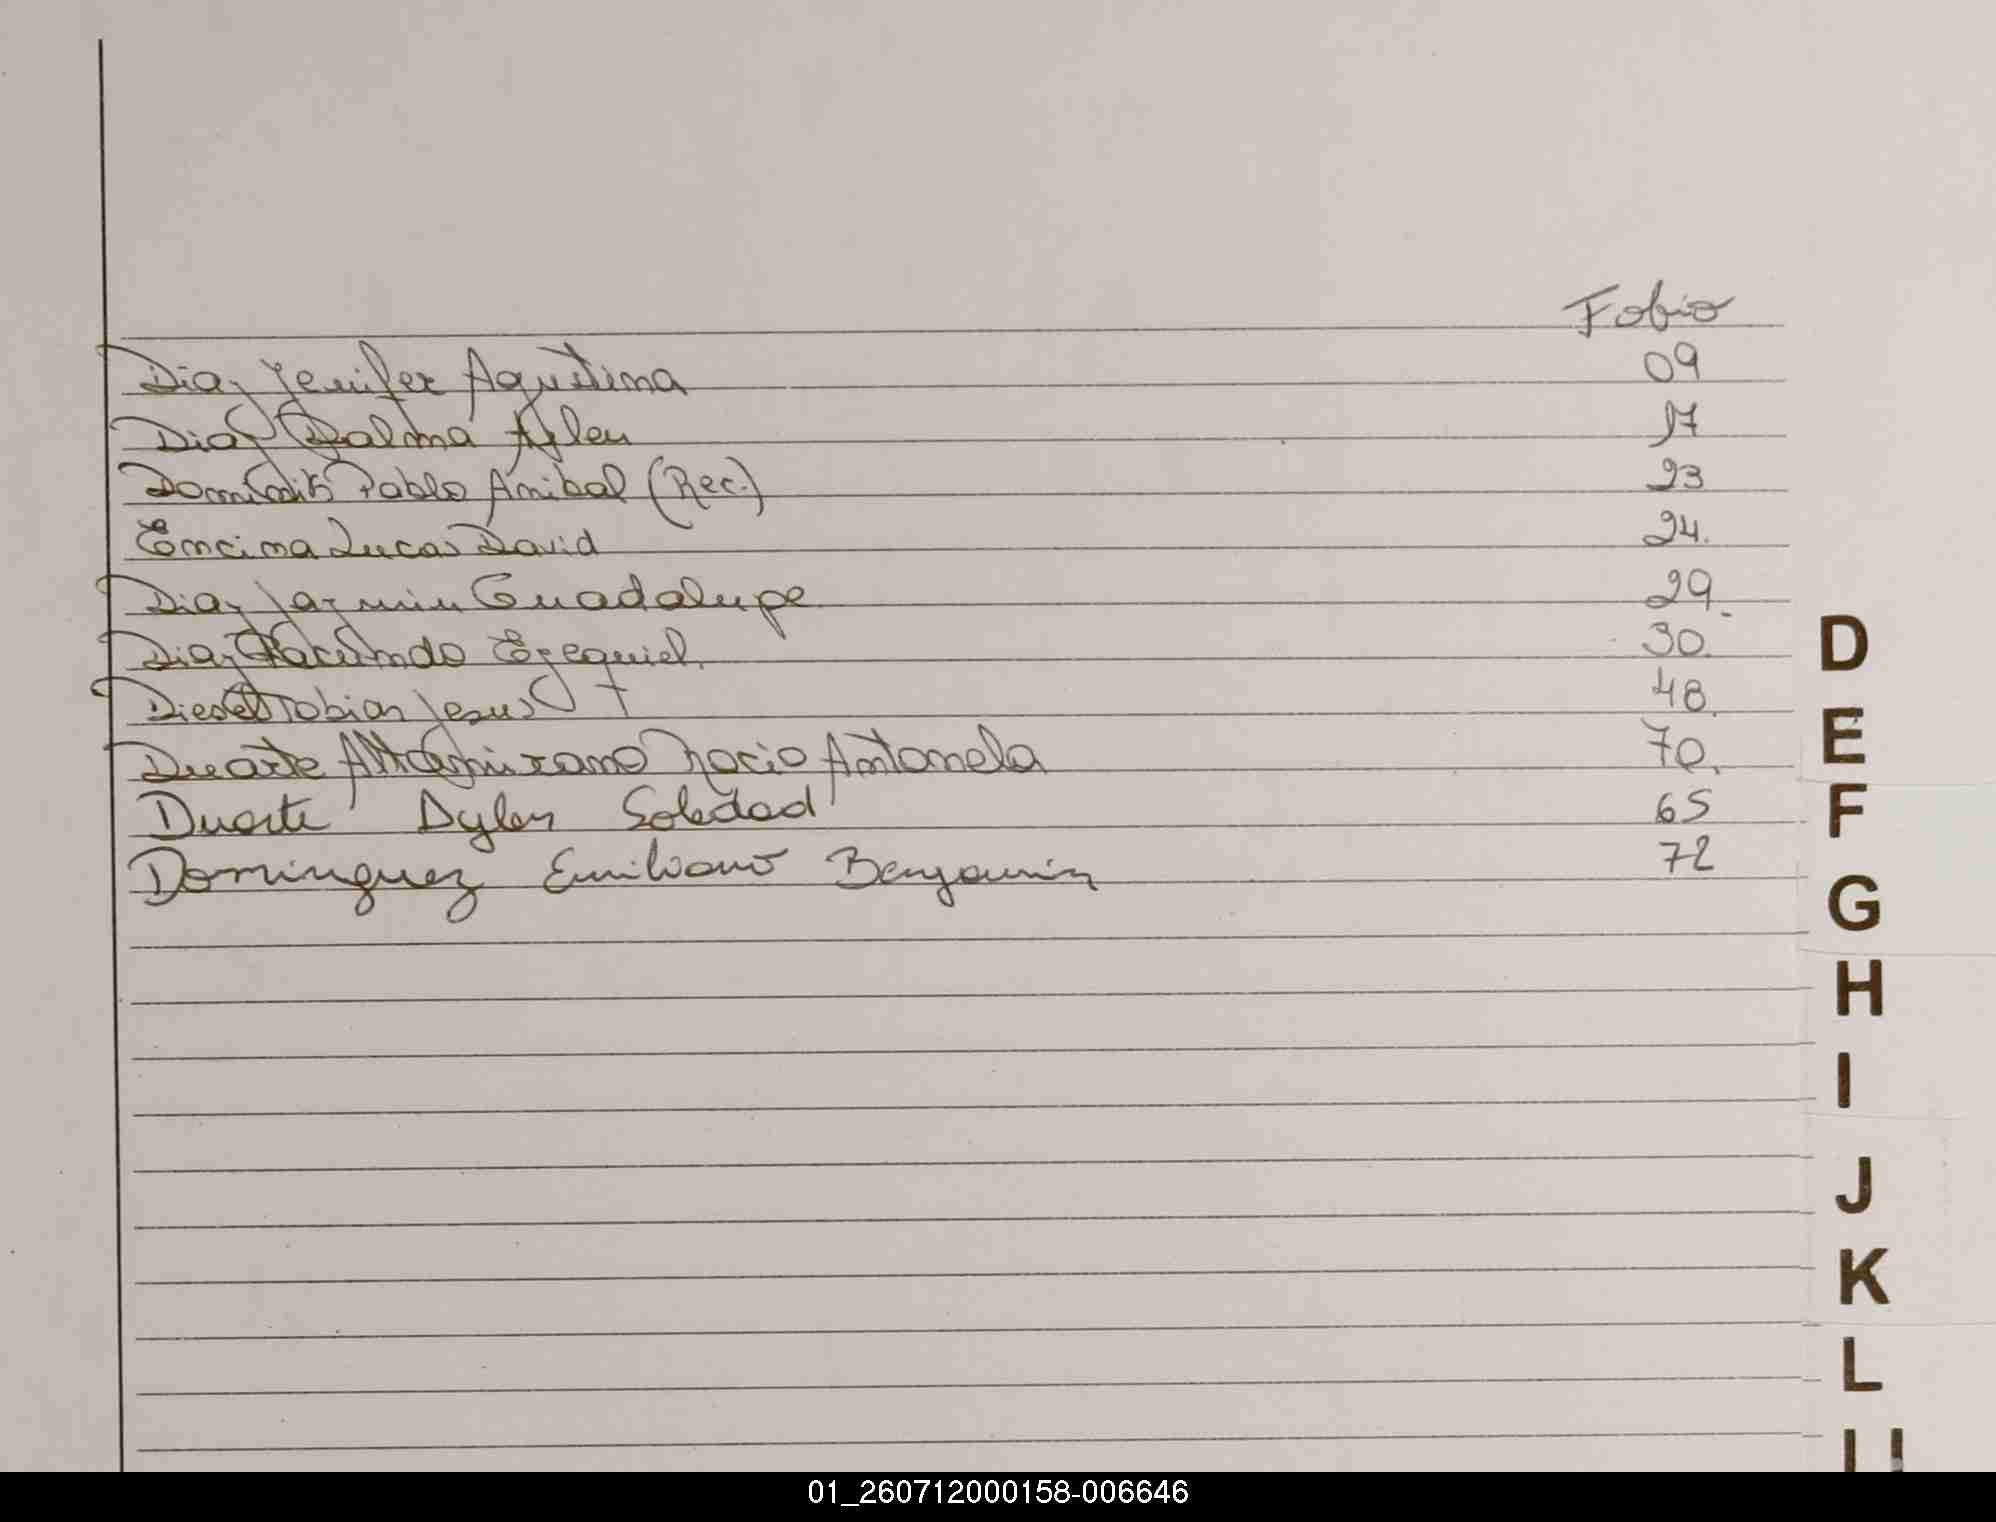 Folio
Diaz Jenifer Agustina 09
Diaz Dalma Aylen 17
Pablo Anibal (Rec.) 23
Encina Lucas David 24.
Diaz Jazmin Guadalupe 29.
Diaz Facundo Ezequiel. 30.
Tobias Jesus 48.
Duarte Altamirano Rocio Antonela 70.
Duarte Dylan Soledad 65
Dominguez Emiliano Benjamin 72
D
E
F
G
H
I
J
K
L
01_260712000158-006646